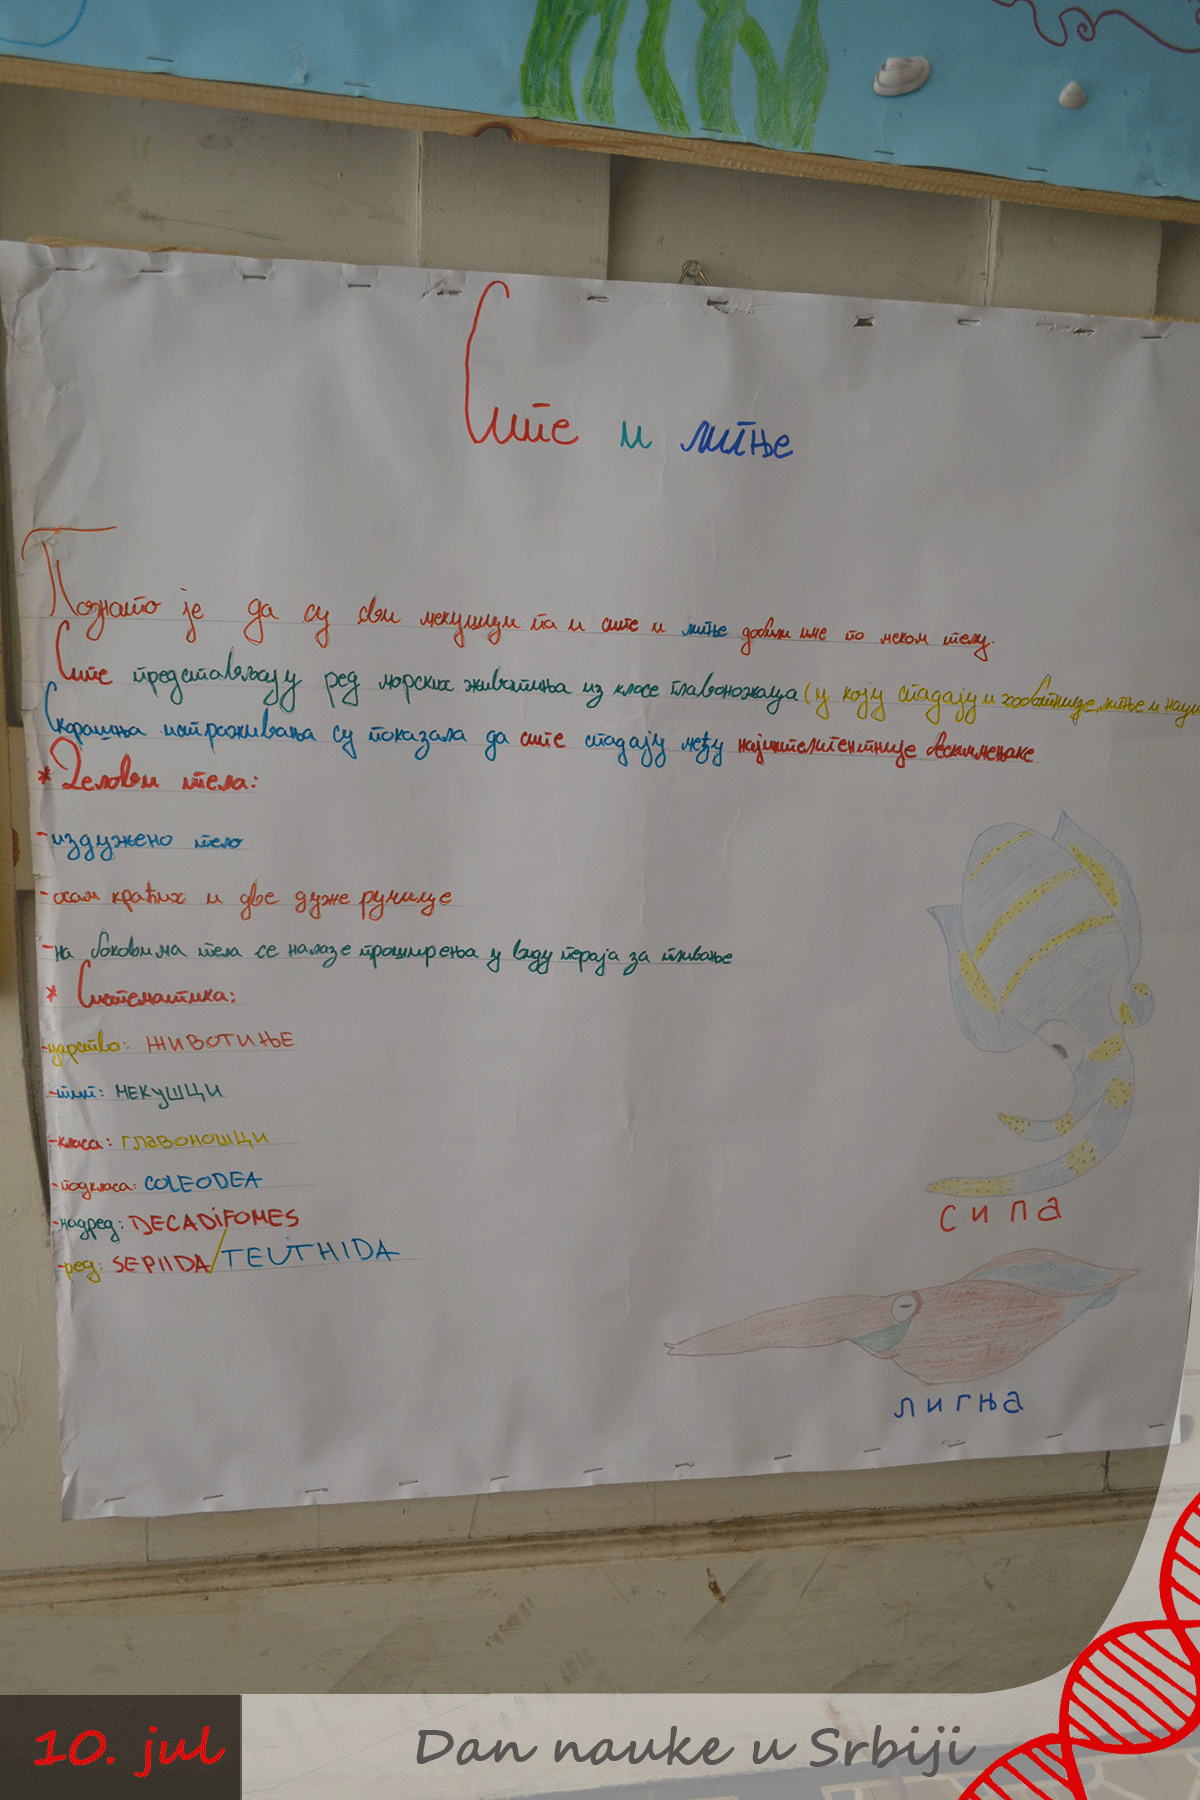 Сипе и лигње
Познато је да су сви мекушци па и сипе и лигње добили име по меком телу.
Сипе представљају ред морских животиња из класе главоножаца (у коју спадају и хоботнице, лигње и
Скорашња истраживања су показала да сипе спадају међу најинтелигентније бескичмењаке
* Делови тела:
-издужено тело
-осам краћих и две дуже ручице
-на боковима тела се налазе проширења у виду пераја за пливање
* Систематика:
-царство: ЖИВОТИЊЕ
-тип: МЕКУШЦИ
-класа: ГЛАВОНОШЦИ
-подкласа: COLEODEA
-надред: DECADIFOMES
-ред: SEPIIDA/TEUTHIDA
сипа
лигња
10. jul
Dan nauke u Srbiji